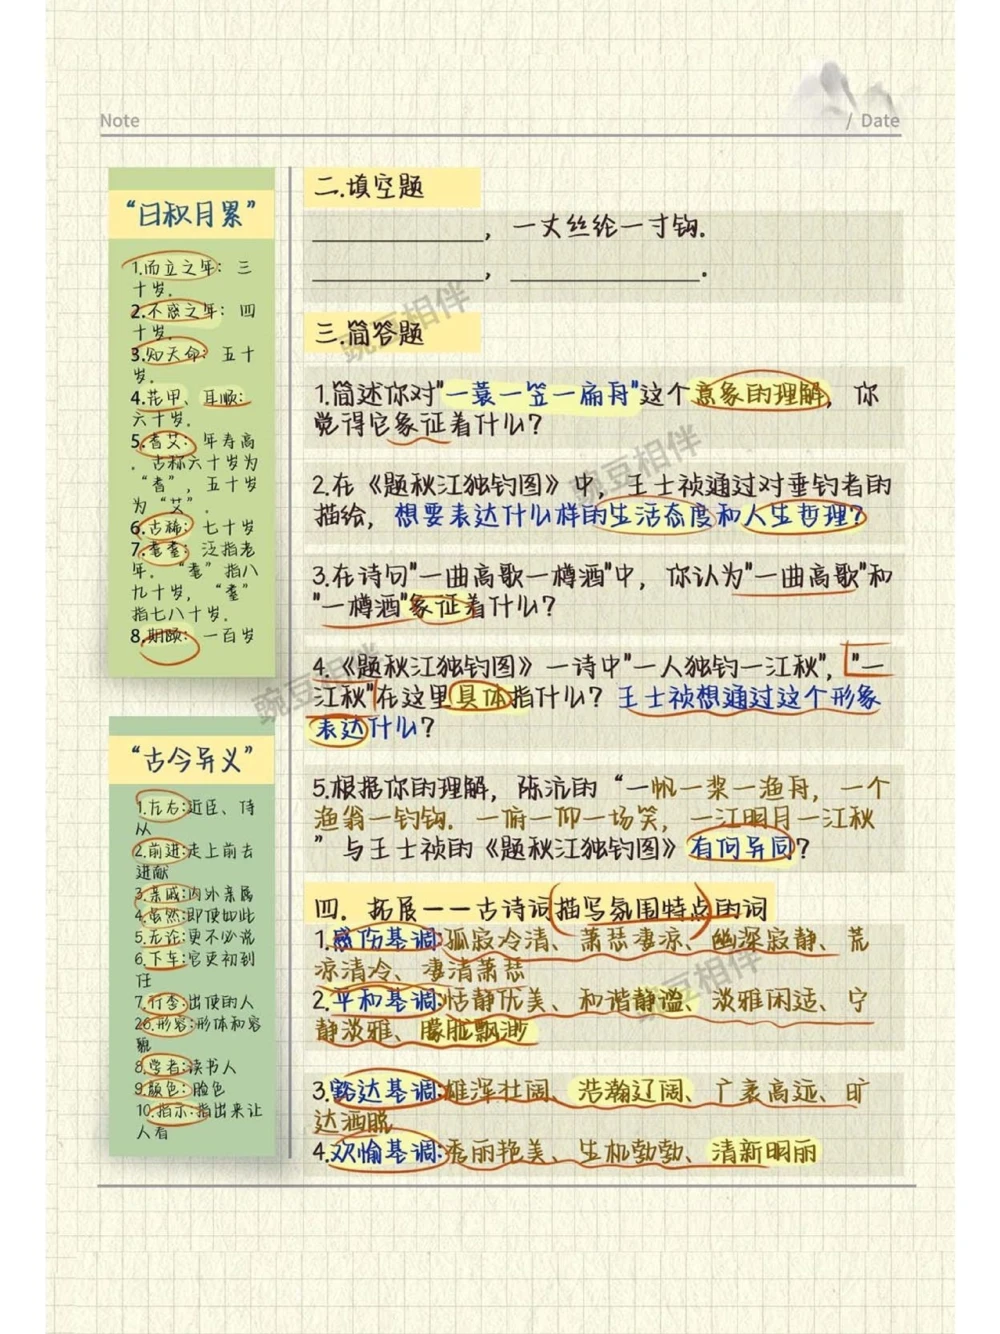 Note
/ Date
“日积月累”
1.而立之年：三
十岁.
2.不惑之年：四
十岁.
3.知天命：五十
岁.
4.花甲、耳顺：
六十岁.
5.耆艾：年寿高
.古称六十岁为
“耆”，五十岁
为“艾”.
6.古稀：七十岁
7.耄耋：泛指老
年.“耄”指八
九十岁，“耋”
指七八十岁.
8.期颐：一百岁
“古今异义”
1.左右:近臣、侍
从
2.前进:走上前去
进献
3.亲戚:内外亲属
4.虽然:即使如此
5.无论:更不必说
6.下车:官吏初到
任
7.行李:出使的人
26.形容:形体和容
貌
8.学者:读书人
9.颜色:脸色
10.指示:指出来让
人看
二.填空题
________，一丈丝纶一寸钩.
________，________.
三.简答题
1.简述你对"一蓑一笠一扁舟"这个意象的理解，你
觉得它象征着什么？
2.在《题秋江独钓图》中，王士祯通过对垂钓者的
描绘，想要表达什么样的生活态度和人生哲理？
3.在诗句"一曲高歌一樽酒"中，你认为"一曲高歌"和
"一樽酒"象征着什么？
4.《题秋江独钓图》一诗中"一人独钓一江秋"，"一
江秋"在这里具体指什么？王士祯想通过这个形象
表达什么？
5.根据你的理解，陈沆的“一帆一桨一渔舟，一个
渔翁一钓钩.一俯一仰一场笑，一江明月一江秋
”与王士祯的《题秋江独钓图》有何异同？
四.拓展——古诗词描写氛围特点的词
1.感伤基调:孤寂冷清、萧瑟凄凉、幽深寂静、荒
凉清冷、凄清萧瑟
2.平和基调:恬静优美、和谐静谧、淡雅闲适、宁
静淡雅、朦胧飘渺
3.豁达基调:雄浑壮阔、浩瀚辽阔、广袤高远、旷
达洒脱
4.欢愉基调:秀丽艳美、生机勃勃、清新明丽
豌豆相伴
豌豆相伴
豌豆相伴
豌豆相伴